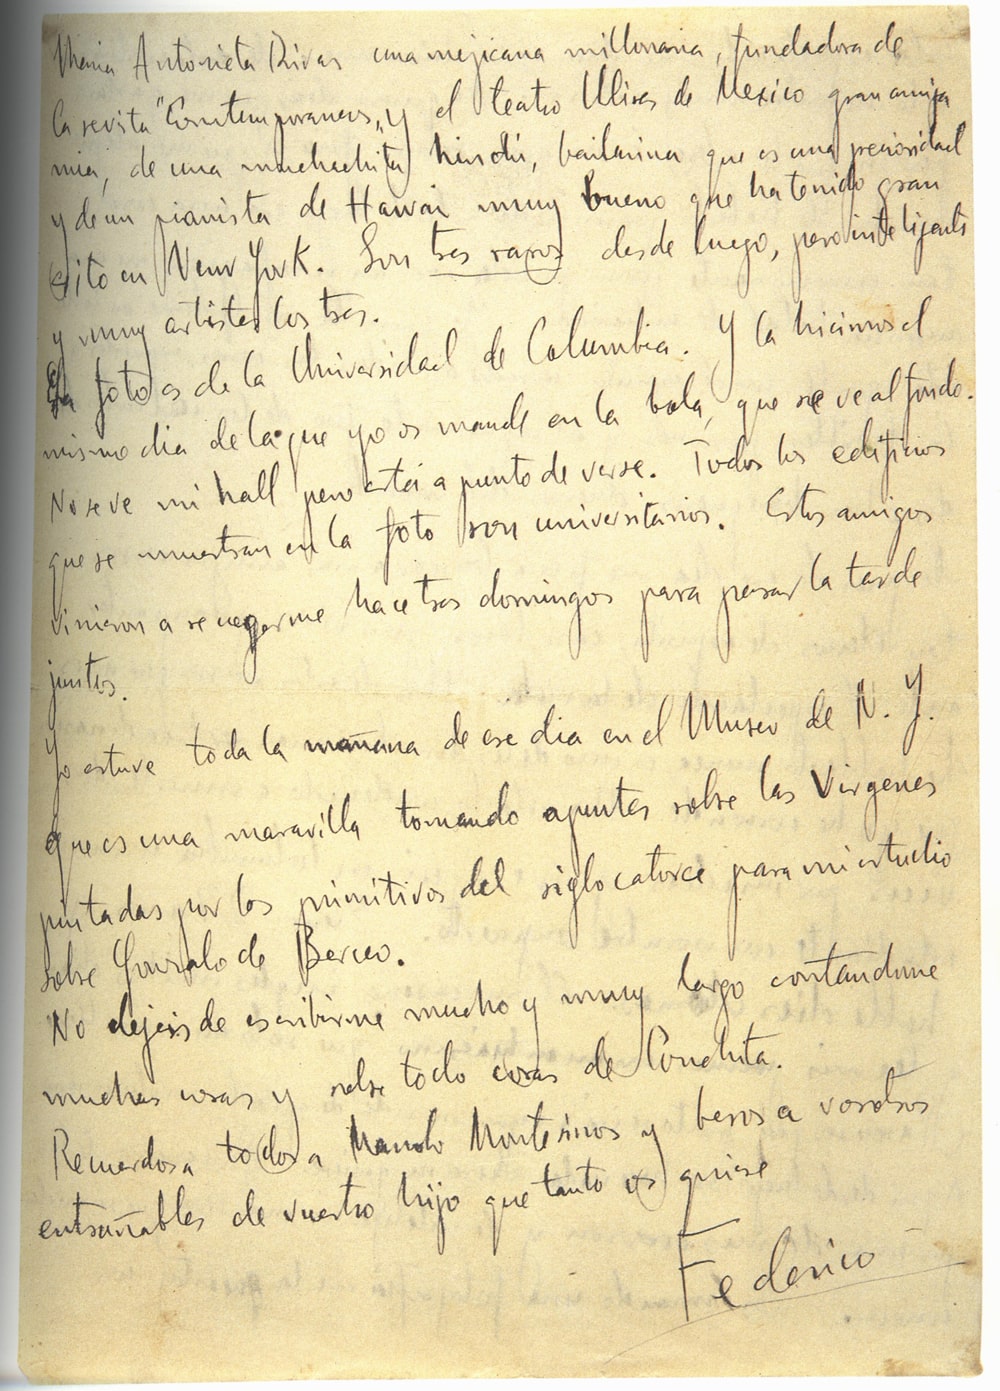 Maria Antonieta Rivas una mejicana millonaria, fundadora de
la revita "Contemporaneos" y el teatro Ulises de Mexico gran amiga
mia, de una muchachita hindú, bailarina que es una preciosidad
y de un pianista de Hawai muy bueno que ha tenido gran
exito en New York. Son tres raros desde luego, pero inteligentes
y muy artistas los tres.
La foto es de la Universidad de Columbia. Y la hicimos el
mismo dia de la que yo os mandé en la bola, que se ve al fondo.
No se ve mi hall pero está a punto de verse. Todos los edificios
que se muestran en la foto son universitarios. Estos amigos
vinieron a recogerme hace tres domingos para pasar la tarde
juntos.
Yo estuve toda la mañana de ese dia en el Museo de N. Y.
que es una maravilla tomando apuntes sobre las Virgenes
pintadas por los primitivos del siglo catorce para mi estudio
sobre Gonzalo de Berceo.
No dejeis de escribirme mucho y muy largo contandome
muchas cosas y sobre todo cosas de Conchita.
Recuerdos a todos a Manolo Montesinos y besos a vosotros
entrañables de vuestro hijo que tanto os quiere
Federico